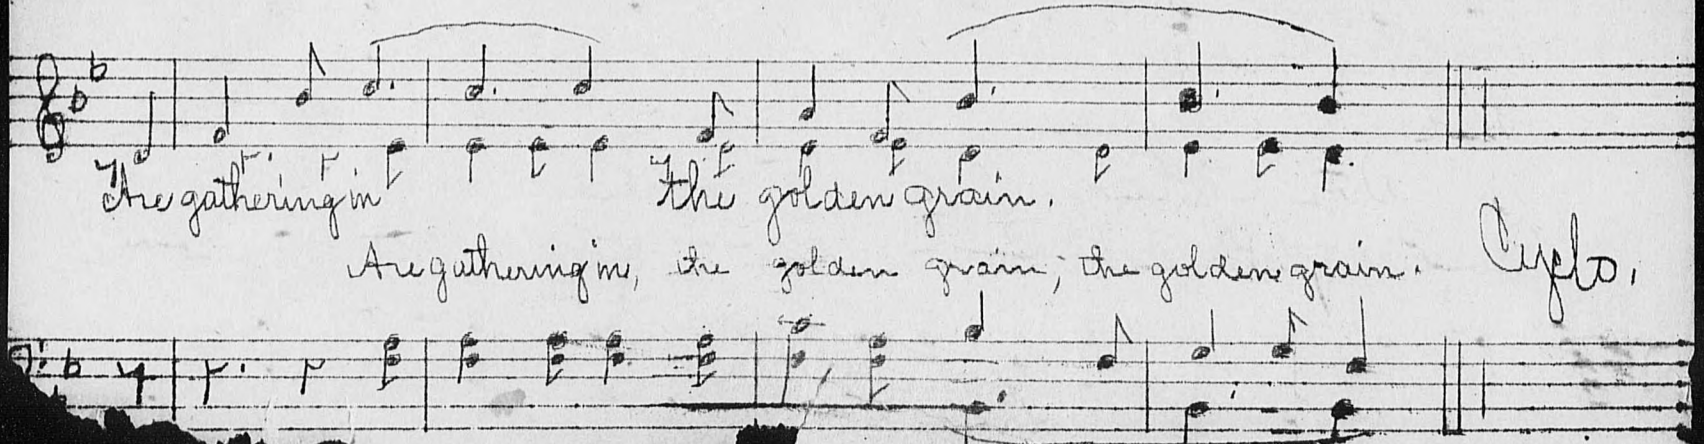 Are gathering in the golden grain.
Are gathering in, the golden grain, the golden grain. Cyclo.